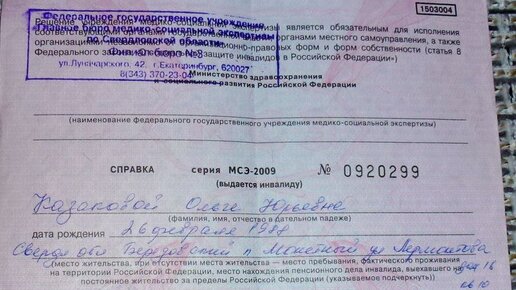 1503004
Федеральное государственное учреждение
Решение учреждения медико-социальной экспертизы является обязательным для исполнения
«Главное бюро медико-социальной экспертизы
соответствующими органами государственной власти, органами местного самоуправления, а также
по Свердловской области»
организациями независимо от организационно-правовых форм и форм собственности (статья 8
Филиал бюро №
Федерального закона «О социальной защите инвалидов в Российской Федерации»)
ул.Луначарского, 42, г.Екатеринбург, 620027
8(343) 370-23-04
Министерство здравоохранения
и социального развития Российской Федерации
(наименование федерального государственного учреждения медико-социальной экспертизы)
СПРАВКА серия МСЭ-2009 № 0920299
(выдается инвалиду)
Казаковой Ольге Юрьевне
(фамилия, имя, отчество в дательном падеже)
дата рождения 26 февраля
Березовский п Монетный ул Лермонтова
(место жительства, при отсутствии места жительства — место пребывания, фактического проживания
на территории Российской Федерации, место нахождения пенсионного дела инвалида, выехавшего на
постоянное жительство за пределы Российской Федерации (указываемое подчеркнуть)
кв 10